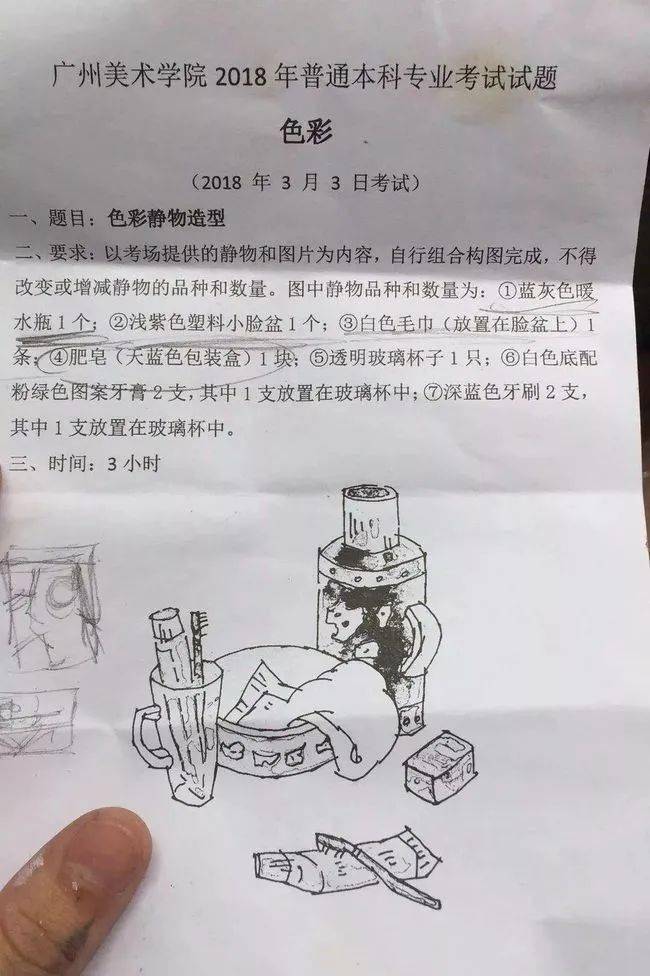 广州美术学院 2018 年普通本科专业考试试题
色彩
（2018 年 3 月 3 日考试）
一、题目：色彩静物造型
二、要求：以考场提供的静物和图片为内容，自行组合构图完成，不得
改变或增减静物的品种和数量。图中静物品种和数量为：①蓝灰色暖
水瓶 1 个；②浅紫色塑料小脸盆 1 个；③白色毛巾（放置在脸盆上）1
条；④肥皂（天蓝色包装盒）1 块；⑤透明玻璃杯子 1 只；⑥白色底配
粉绿色图案牙膏 2 支，其中 1 支放置在玻璃杯中；⑦深蓝色牙刷 2 支，
其中 1 支放置在玻璃杯中。
三、时间：3 小时